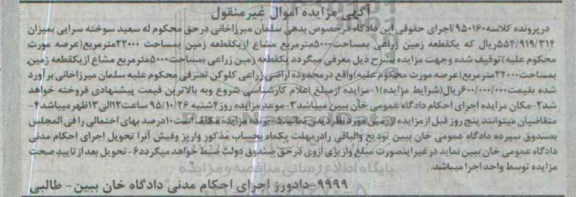 آگهی مزایده اموال غیرمنقول
در پرونده کلاسه ۹۵۰۱۶۰ اجرای حقوقی این دادگاه در خصوص بدهی سلمان میرزاخانی در حق محکوم له سعید سوخته سرایی بمیزان
۵۵۴/۹۱۹/۳۱۴ ریال که یکقطعه زمین زراعی بمساحت ۵۰۰۰مترمربع مشاع از یکقطعه زمین بمساحت ۲۲۰۰۰ مترمربع (عرصه مورت
محکوم علیه) توقیف شده وجهت مزایده بشرح ذیل معرفی میگردد یکقطعه زمین زراعی بمساحت ۵۰۰۰مترمربع مشاع از یکقطعه زمین
بمساحت ۲۲۰۰۰مترمربع (عرصه مورت محکوم علیه) واقع در محدوده اراضی زراعی کلوکن تصرفی محکوم علیه سلمان میرزاخانی برآورد
شده بقیمت ۶۰۰/۰۰۰/۰۰۰ریال (شرایط مزایده) ۱- مزایده از مبلغ اعلام کارشناسی شروع و به بالاترین قیمت پیشنهادی فروخته خواهد
شد ۲- مکان مزایده اجرای احکام دادگاه عمومی خان ببین میباشد ۳- موعد مزایده روز ۱شنبه ۹۵/۱۰/۲۶ ساعت ۱۲الی ۱۳ظهر میباشد ۴-
متقاضیان میتوانند پنج روز قبل از مزایده از زمین مورد نظر دیدن نمایند ۵- برنده مزایده مکلف است ۱۰درصد بهای احتمالی را فی المجلس
بصندوق سپرده دادگاه عمومی خان ببین تودیع والباقی را در مهلت یکماه بحساب مذکور واریز وفیش آنرا تحویل اجرای احکام مدنی
دادگاه عمومی خان ببین نماید در غیر اینصورت مبلغ واریزی از وی در حق صندوق دولت ضبط خواهد میگردد ۶- تحویل بعد از تایید صحت
مزایده توسط واحد اجرا میباشد.
۹۹۹۹- دادورز اجرای احکام مدنی دادگاه خان ببین - طالبی